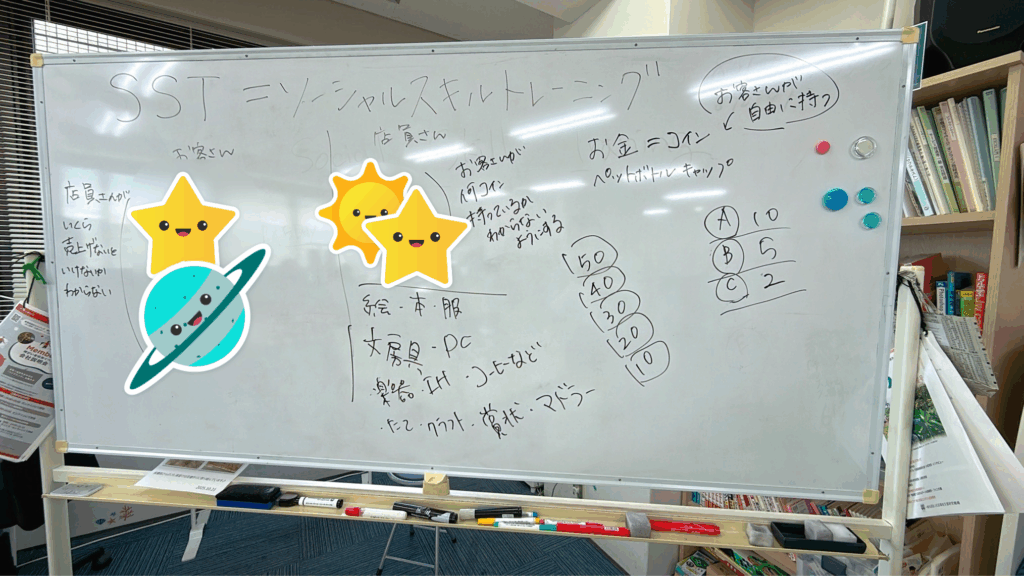 SST = ソーシャルスキルトレーニング
お客さん
店員さんが
いくら
売上げないと
いけないか
わからない
店員さん
お客さんが
何コイン
持っているか
わからない
ようにする
絵・本・服
文房具・PC
楽器・IH・コーヒーなど
・たて・クラフト・賞状・マドラー
お客さんが
自由に持つ
お金 = コイン
ペットボトルキャップ
50
40
30
20
10
A 10
B 5
C 2